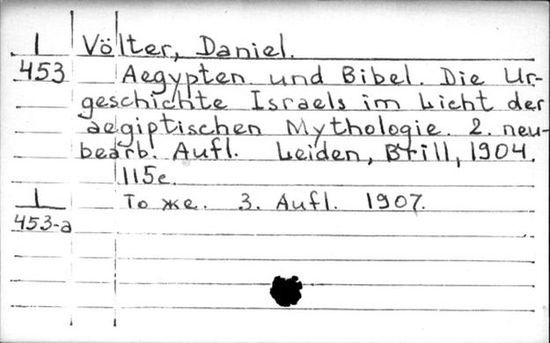 I Völter, Daniel.
453 Aegypten und Bibel. Die Ur-
geschichte Israels im Licht der
aegiptischen Mythologie. 2. neu-
bearb. Aufl. Leiden, Brill, 1904.
115с.
I То же. 3. Aufl. 1907.
453-а